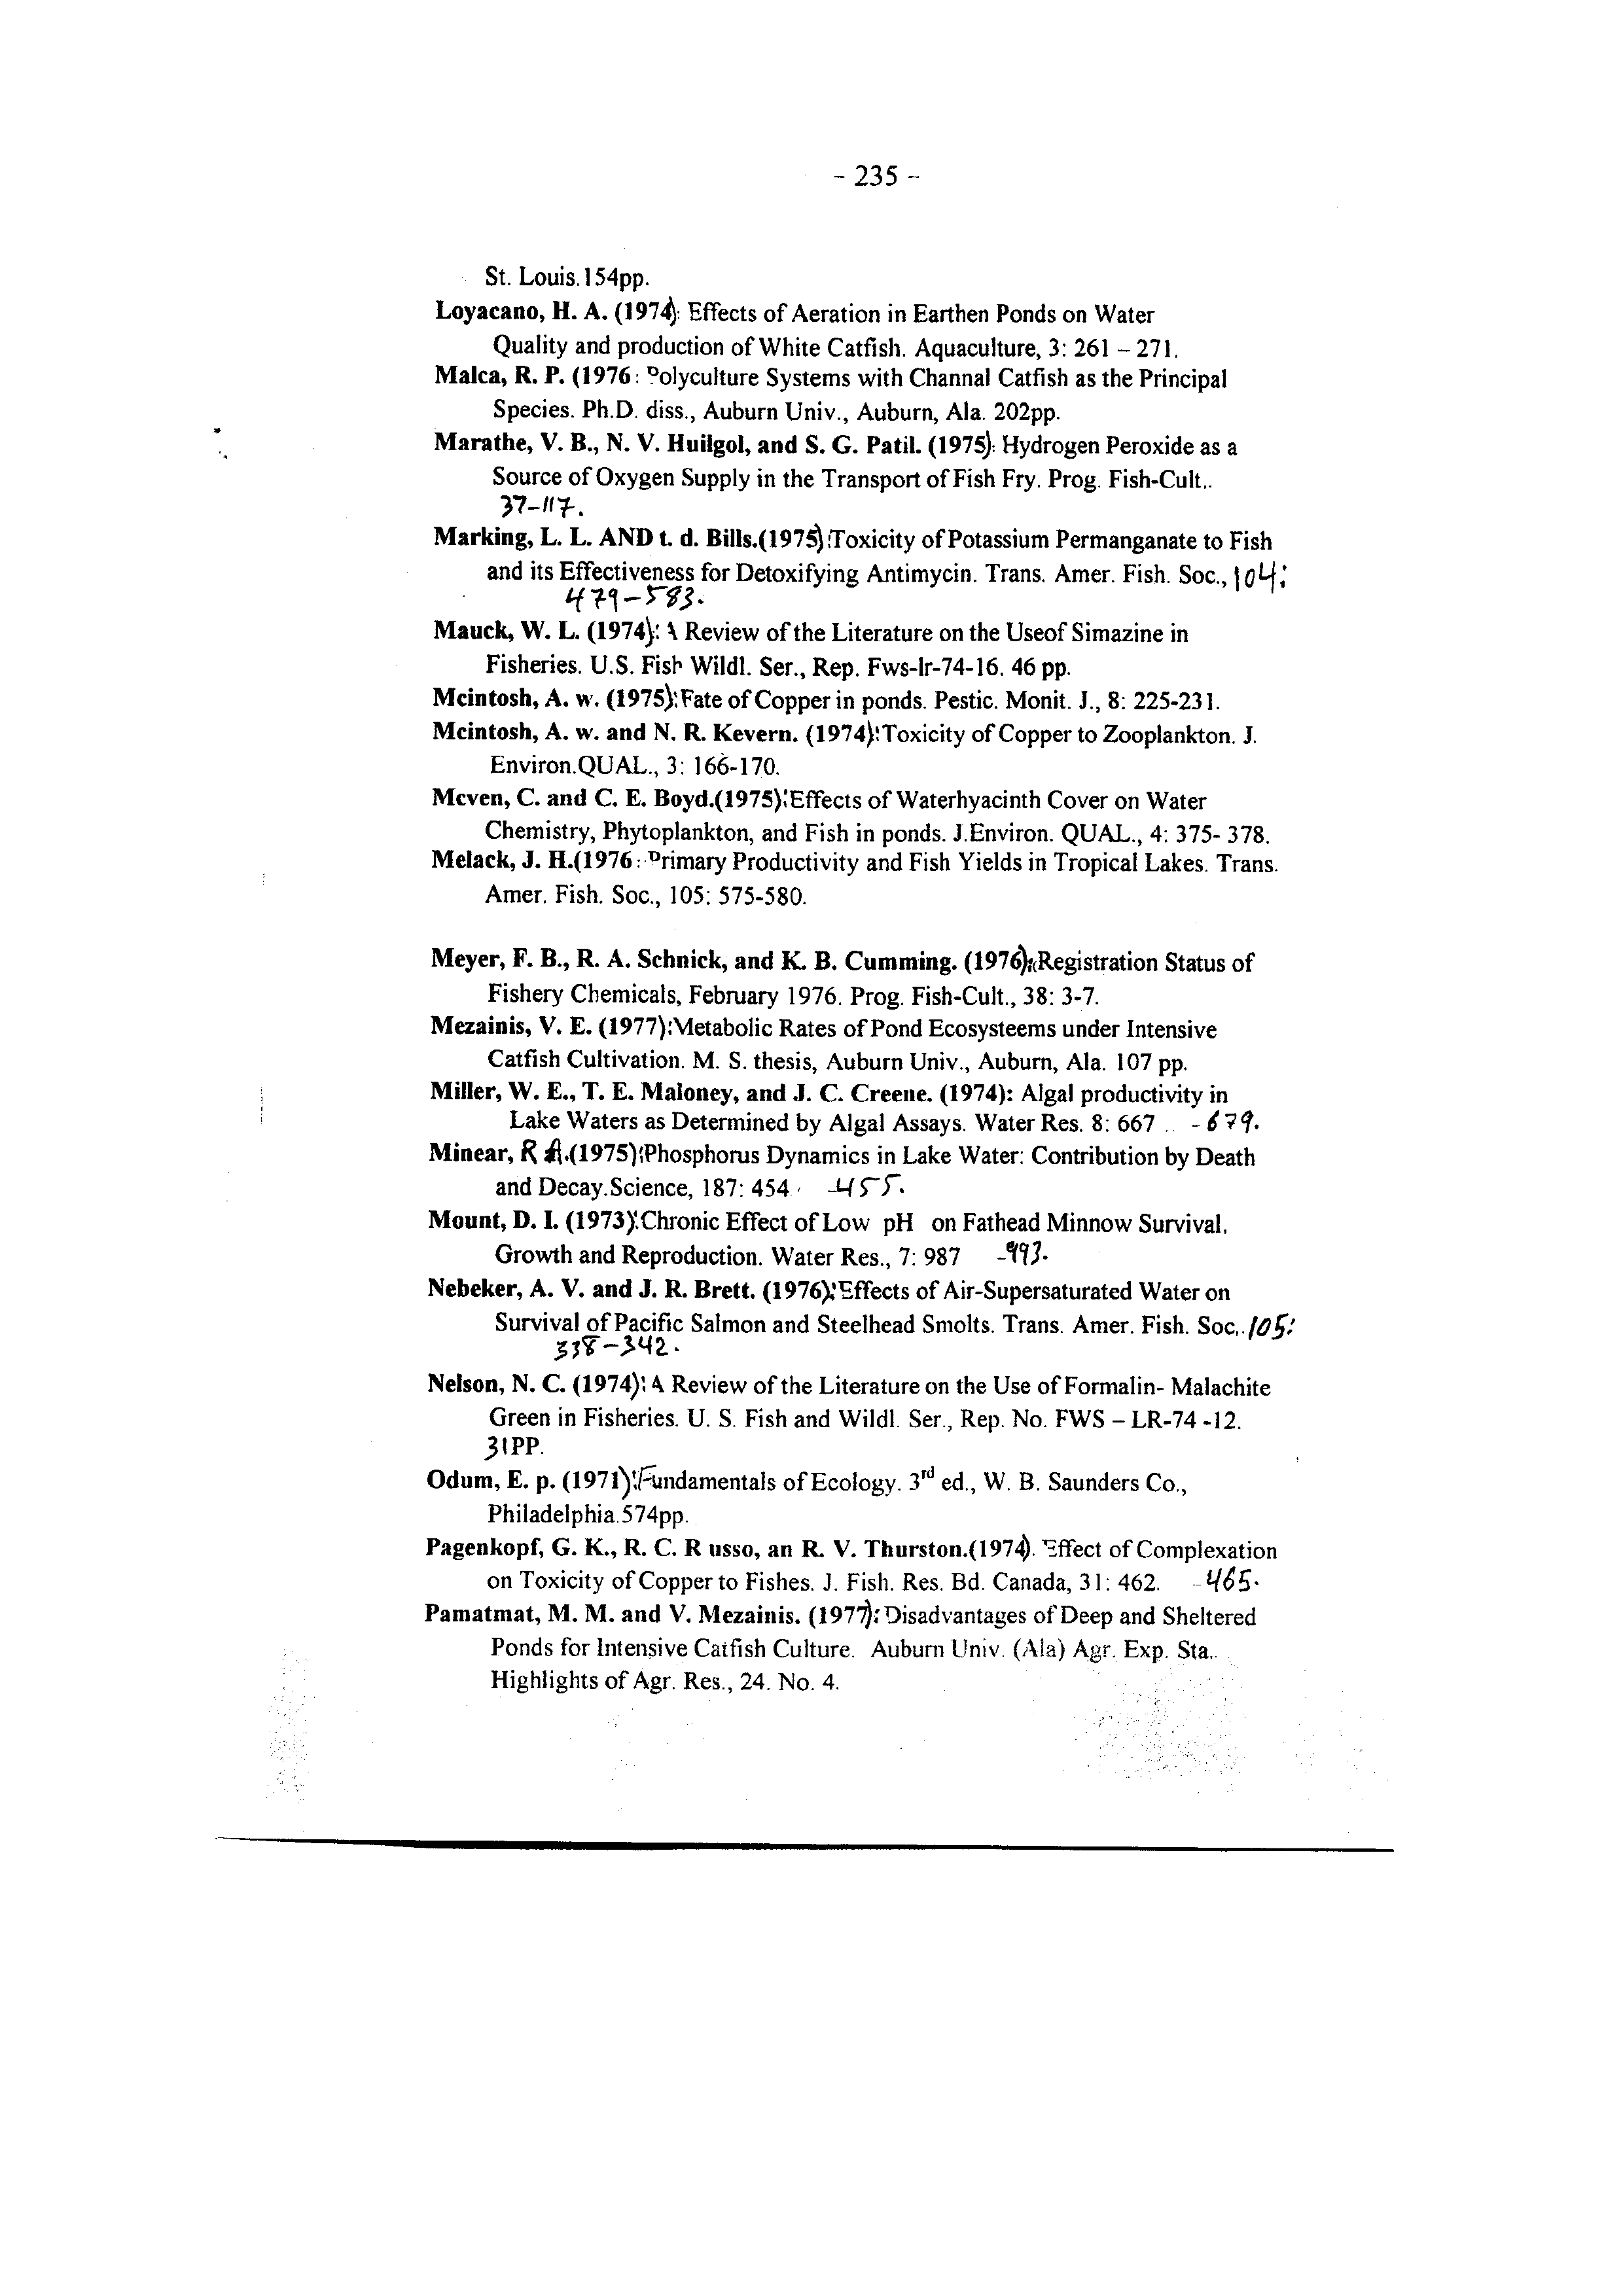 - 235 -
St. Louis.154pp.
Loyacano, H. A. (1974): Effects of Aeration in Earthen Ponds on Water
Quality and production of White Catfish. Aquaculture, 3: 261 – 271.
Malca, R. P. (1976: Polyculture Systems with Channal Catfish as the Principal
Species. Ph.D. diss., Auburn Univ., Auburn, Ala. 202pp.
Marathe, V. B., N. V. Huilgol, and S. G. Patil. (1975): Hydrogen Peroxide as a
Source of Oxygen Supply in the Transport of Fish Fry. Prog. Fish-Cult..
37-117.
Marking, L. L. AND t. d. Bills.(1975):Toxicity of Potassium Permanganate to Fish
and its Effectiveness for Detoxifying Antimycin. Trans. Amer. Fish. Soc., 104:
479-583.
Mauck, W. L. (1974): A Review of the Literature on the Useof Simazine in
Fisheries. U.S. Fish Wildl. Ser., Rep. Fws-lr-74-16. 46 pp.
Mcintosh, A. w. (1975):Fate of Copper in ponds. Pestic. Monit. J., 8: 225-231.
Mcintosh, A. w. and N. R. Kevern. (1974):Toxicity of Copper to Zooplankton. J.
Environ.QUAL., 3: 166-170.
Mcven, C. and C. E. Boyd.(1975):Effects of Waterhyacinth Cover on Water
Chemistry, Phytoplankton, and Fish in ponds. J.Environ. QUAL., 4: 375- 378.
Melack, J. H.(1976: Primary Productivity and Fish Yields in Tropical Lakes. Trans.
Amer. Fish. Soc., 105: 575-580.
Meyer, F. B., R. A. Schnick, and K. B. Cumming. (1976):Registration Status of
Fishery Chemicals, February 1976. Prog. Fish-Cult., 38: 3-7.
Mezainis, V. E. (1977):Metabolic Rates of Pond Ecosysteems under Intensive
Catfish Cultivation. M. S. thesis, Auburn Univ., Auburn, Ala. 107 pp.
Miller, W. E., T. E. Maloney, and J. C. Creene. (1974): Algal productivity in
Lake Waters as Determined by Algal Assays. Water Res. 8: 667 - 679.
Minear, R A.(1975):Phosphorus Dynamics in Lake Water: Contribution by Death
and Decay.Science, 187: 454 -455.
Mount, D. I. (1973):Chronic Effect of Low pH on Fathead Minnow Survival,
Growth and Reproduction. Water Res., 7: 987 -993.
Nebeker, A. V. and J. R. Brett. (1976):Effects of Air-Supersaturated Water on
Survival of Pacific Salmon and Steelhead Smolts. Trans. Amer. Fish. Soc,. 105:
338-342.
Nelson, N. C. (1974): A Review of the Literature on the Use of Formalin- Malachite
Green in Fisheries. U. S. Fish and Wildl. Ser., Rep. No. FWS – LR-74 -12.
31PP.
Odum, E. p. (1971):Fundamentals of Ecology. 3rd ed., W. B. Saunders Co.,
Philadelphia.574pp.
Pagenkopf, G. K., R. C. R usso, an R. V. Thurston.(1974). Effect of Complexation
on Toxicity of Copper to Fishes. J. Fish. Res. Bd. Canada, 31: 462. -465.
Pamatmat, M. M. and V. Mezainis. (1977): Disadvantages of Deep and Sheltered
Ponds for Intensive Catfish Culture. Auburn Univ. (Ala) Agr. Exp. Sta..
Highlights of Agr. Res., 24. No. 4.